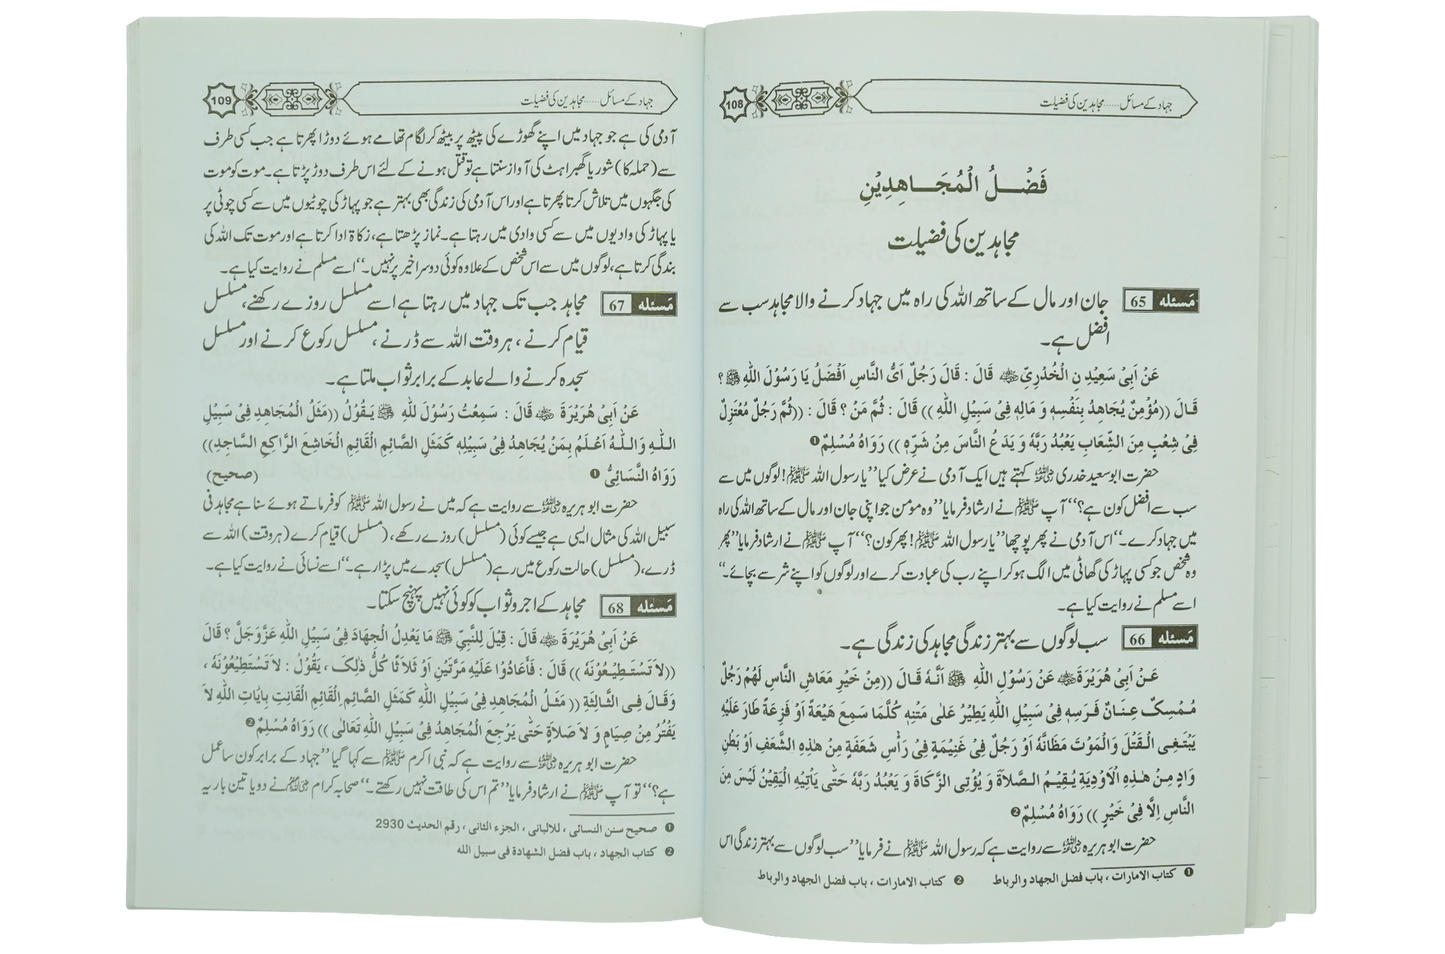 جہاد کے مسائل ...... مجاہدین کی فضیلت
108
فَضْلُ الْمُجَاهِدِيْنِ
مجاہدین کی فضیلت
مَسئله 65 جان اور مال کے ساتھ اللہ کی راہ میں جہاد کرنے والا مجاہد سب سے
افضل ہے۔
عَنْ اَبِیْ سَعِیْدِ نِ الْخُدْرِیِّ ﷜ قَالَ : قَالَ رَجُلٌ اَیُّ النَّاسِ اَفْضَلُ یَا رَسُوْلَ اللّٰهِ ﷺ ؟
قَالَ ((مُؤْمِنٌ یُجَاهِدُ بِنَفْسِهٖ وَ مَالِهٖ فِیْ سَبِیْلِ اللّٰهِ )) قَالَ : ثُمَّ مَنْ ؟ قَالَ : ((ثُمَّ رَجُلٌ مُعْتَزِلٌ
فِیْ شِعْبٍ مِنَ الشِّعَابِ یَعْبُدُ رَبَّهٗ وَ یَدَعُ النَّاسَ مِنْ شَرِّهٖ )) رَوَاهُ مُسْلِمٌ ❶
حضرت ابوسعید خدری ﷜ کہتے ہیں ایک آدمی نے عرض کیا ’’یا رسول اللہ ﷺ! لوگوں میں سے
سب سے افضل کون ہے؟‘‘ آپ ﷺ نے ارشاد فرمایا ’’وہ مومن جو اپنی جان اور مال کے ساتھ اللہ کی راہ
میں جہاد کرے۔‘‘ اس آدمی نے پھر پوچھا ’’یا رسول اللہ ﷺ! پھر کون؟‘‘ آپ ﷺ نے ارشاد فرمایا ’’پھر
وہ شخص جو کسی پہاڑ کی گھاٹی میں الگ ہو کر اپنے رب کی عبادت کرے اور لوگوں کو اپنے شر سے بچائے۔‘‘
اسے مسلم نے روایت کیا ہے۔
مَسئله 66 سب لوگوں سے بہتر زندگی مجاہد کی زندگی ہے۔
عَنْ اَبِیْ هُرَیْرَةَ ﷜ عَنْ رَسُوْلِ اللّٰهِ ﷺ اَنَّهٗ قَالَ ((مِنْ خَیْرِ مَعَاشِ النَّاسِ لَهُمْ رَجُلٌ
مُمْسِکٌ عِنَانَ فَرَسِهٖ فِیْ سَبِیْلِ اللّٰهِ یَطِیْرُ عَلٰی مَتْنِهٖ کُلَّمَا سَمِعَ هَیْعَةً اَوْ فَزْعَةً طَارَ عَلَیْهِ
یَبْتَغِی الْقَتْلَ وَالْمَوْتَ مَظَانَّهٗ اَوْ رَجُلٌ فِیْ غَنِیْمَةٍ فِیْ رَأْسِ شَعَفَةٍ مِنْ هٰذِهِ الشَّعَفِ اَوْ بَطْنِ
وَادٍ مِنْ هٰذِهِ الْاَوْدِیَةِ یُقِیْمُ الصَّلاَةَ وَ یُؤْتِی الزَّکَاةَ وَ یَعْبُدُ رَبَّهٗ حَتّٰی یَأْتِیَهُ الْیَقِیْنُ لَیْسَ مِنَ
النَّاسِ اِلَّا فِیْ خَیْرٍ )) رَوَاهُ مُسْلِمٌ ❷
حضرت ابوہریرہ ﷜ سے روایت ہے کہ رسول اللہ ﷺ نے فرمایا ’’سب لوگوں سے بہتر زندگی اس
❶ کتاب الامارات ، باب فضل الجهاد والرباط ❷ کتاب الامارات ، باب فضل الجهاد والرباط
جہاد کے مسائل ...... مجاہدین کی فضیلت
109
آدمی کی ہے جو جہاد میں اپنے گھوڑے کی پیٹھ پر بیٹھ کر لگام تھامے ہوئے دوڑا پھرتا ہے جب کسی طرف
سے (حملہ کا) شور یا گھبراہٹ کی آواز سنتا ہے تو قتل ہونے کے لئے اس طرف دوڑ پڑتا ہے۔ موت کو موت
کی جگہوں میں تلاش کرتا پھرتا ہے اور اس آدمی کی زندگی بھی بہتر ہے جو پہاڑ کی چوٹیوں میں سے کسی چوٹی پر
یا پہاڑ کی وادیوں میں سے کسی وادی میں رہتا ہے۔ نماز پڑھتا ہے، زکاۃ ادا کرتا ہے اور موت تک اللہ کی
بندگی کرتا ہے، لوگوں میں سے اس شخص کے علاوہ کوئی دوسرا خیر پر نہیں۔‘‘ اسے مسلم نے روایت کیا ہے۔
مَسئله 67 مجاہد جب تک جہاد میں رہتا ہے اسے مسلسل روزے رکھنے، مسلسل
قیام کرنے ، ہر وقت اللہ سے ڈرنے ، مسلسل رکوع کرنے اور مسلسل
سجدہ کرنے والے عابد کے برابر ثواب ملتا ہے۔
عَنْ اَبِیْ هُرَیْرَةَ ﷜ قَالَ : سَمِعْتُ رَسُوْلَ للّٰهِ ﷺ یَقُوْلُ ((مَثَلُ الْمُجَاهِدِ فِیْ سَبِیْلِ
اللّٰهِ وَاللّٰهُ اَعْلَمُ بِمَنْ یُجَاهِدُ فِیْ سَبِیْلِهٖ کَمَثَلِ الصَّائِمِ الْقَائِمِ الْخَاشِعِ الرَّاکِعِ السَّاجِدِ))
رَوَاهُ النَّسَائِیُّ ❶ (صحیح)
حضرت ابوہریرہ ﷜ سے روایت ہے کہ میں نے رسول اللہ ﷺ کو فرماتے ہوئے سنا ہے مجاہد فی
سبیل اللہ کی مثال ایسی ہے جیسے کوئی (مسلسل) روزے رکھے، (مسلسل) قیام کرے (ہر وقت) اللہ سے
ڈرے، (مسلسل) حالت رکوع میں رہے (مسلسل) سجدے میں پڑا رہے۔‘‘ اسے نسائی نے روایت کیا ہے۔
مَسئله 68 مجاہد کے اجر و ثواب کو کوئی نہیں پہنچ سکتا۔
عَنْ اَبِیْ هُرَیْرَةَ ﷜ قَالَ : قِیْلَ لِلنَّبِیِّ ﷺ مَا یَعْدِلُ الْجِهَادَ فِیْ سَبِیْلِ اللّٰهِ عَزَّوَجَلَّ ؟ قَالَ
((لاَ تَسْتَطِیْعُوْنَهٗ )) قَالَ : فَأَعَادُوْا عَلَیْهِ مَرَّتَیْنِ اَوْ ثَلاَثًا کُلُّ ذٰلِکَ ، یَقُوْلُ : لاَ تَسْتَطِیْعُوْنَهٗ ،
وَقَالَ فِی الثَّالِثَةِ (( مَثَلُ الْمُجَاهِدِ فِیْ سَبِیْلِ اللّٰهِ کَمَثَلِ الصَّائِمِ الْقَائِمِ الْقَانِتِ بِاٰیَاتِ اللّٰهِ لاَ
یَفْتُرُ مِنْ صِیَامٍ وَ لاَ صَلاَةٍ حَتّٰی یَرْجِعَ الْمُجَاهِدُ فِیْ سَبِیْلِ اللّٰهِ تَعَالٰی )) رَوَاهُ مُسْلِمٌ ❷
حضرت ابوہریرہ ﷜ سے روایت ہے کہ نبی اکرم ﷺ سے کہا گیا ’’جہاد کے برابر کون سا عمل
ہے؟‘‘ تو آپ ﷺ نے ارشاد فرمایا ’’تم اس کی طاقت نہیں رکھتے۔‘‘ صحابہ کرام ﷢ نے دو یا تین بار یہ
❶ صحیح سنن النسائی ، للالبانی ، الجزء الثانی ، رقم الحدیث 2930
❷ کتاب الجهاد ، باب فضل الشهادة فی سبیل الله